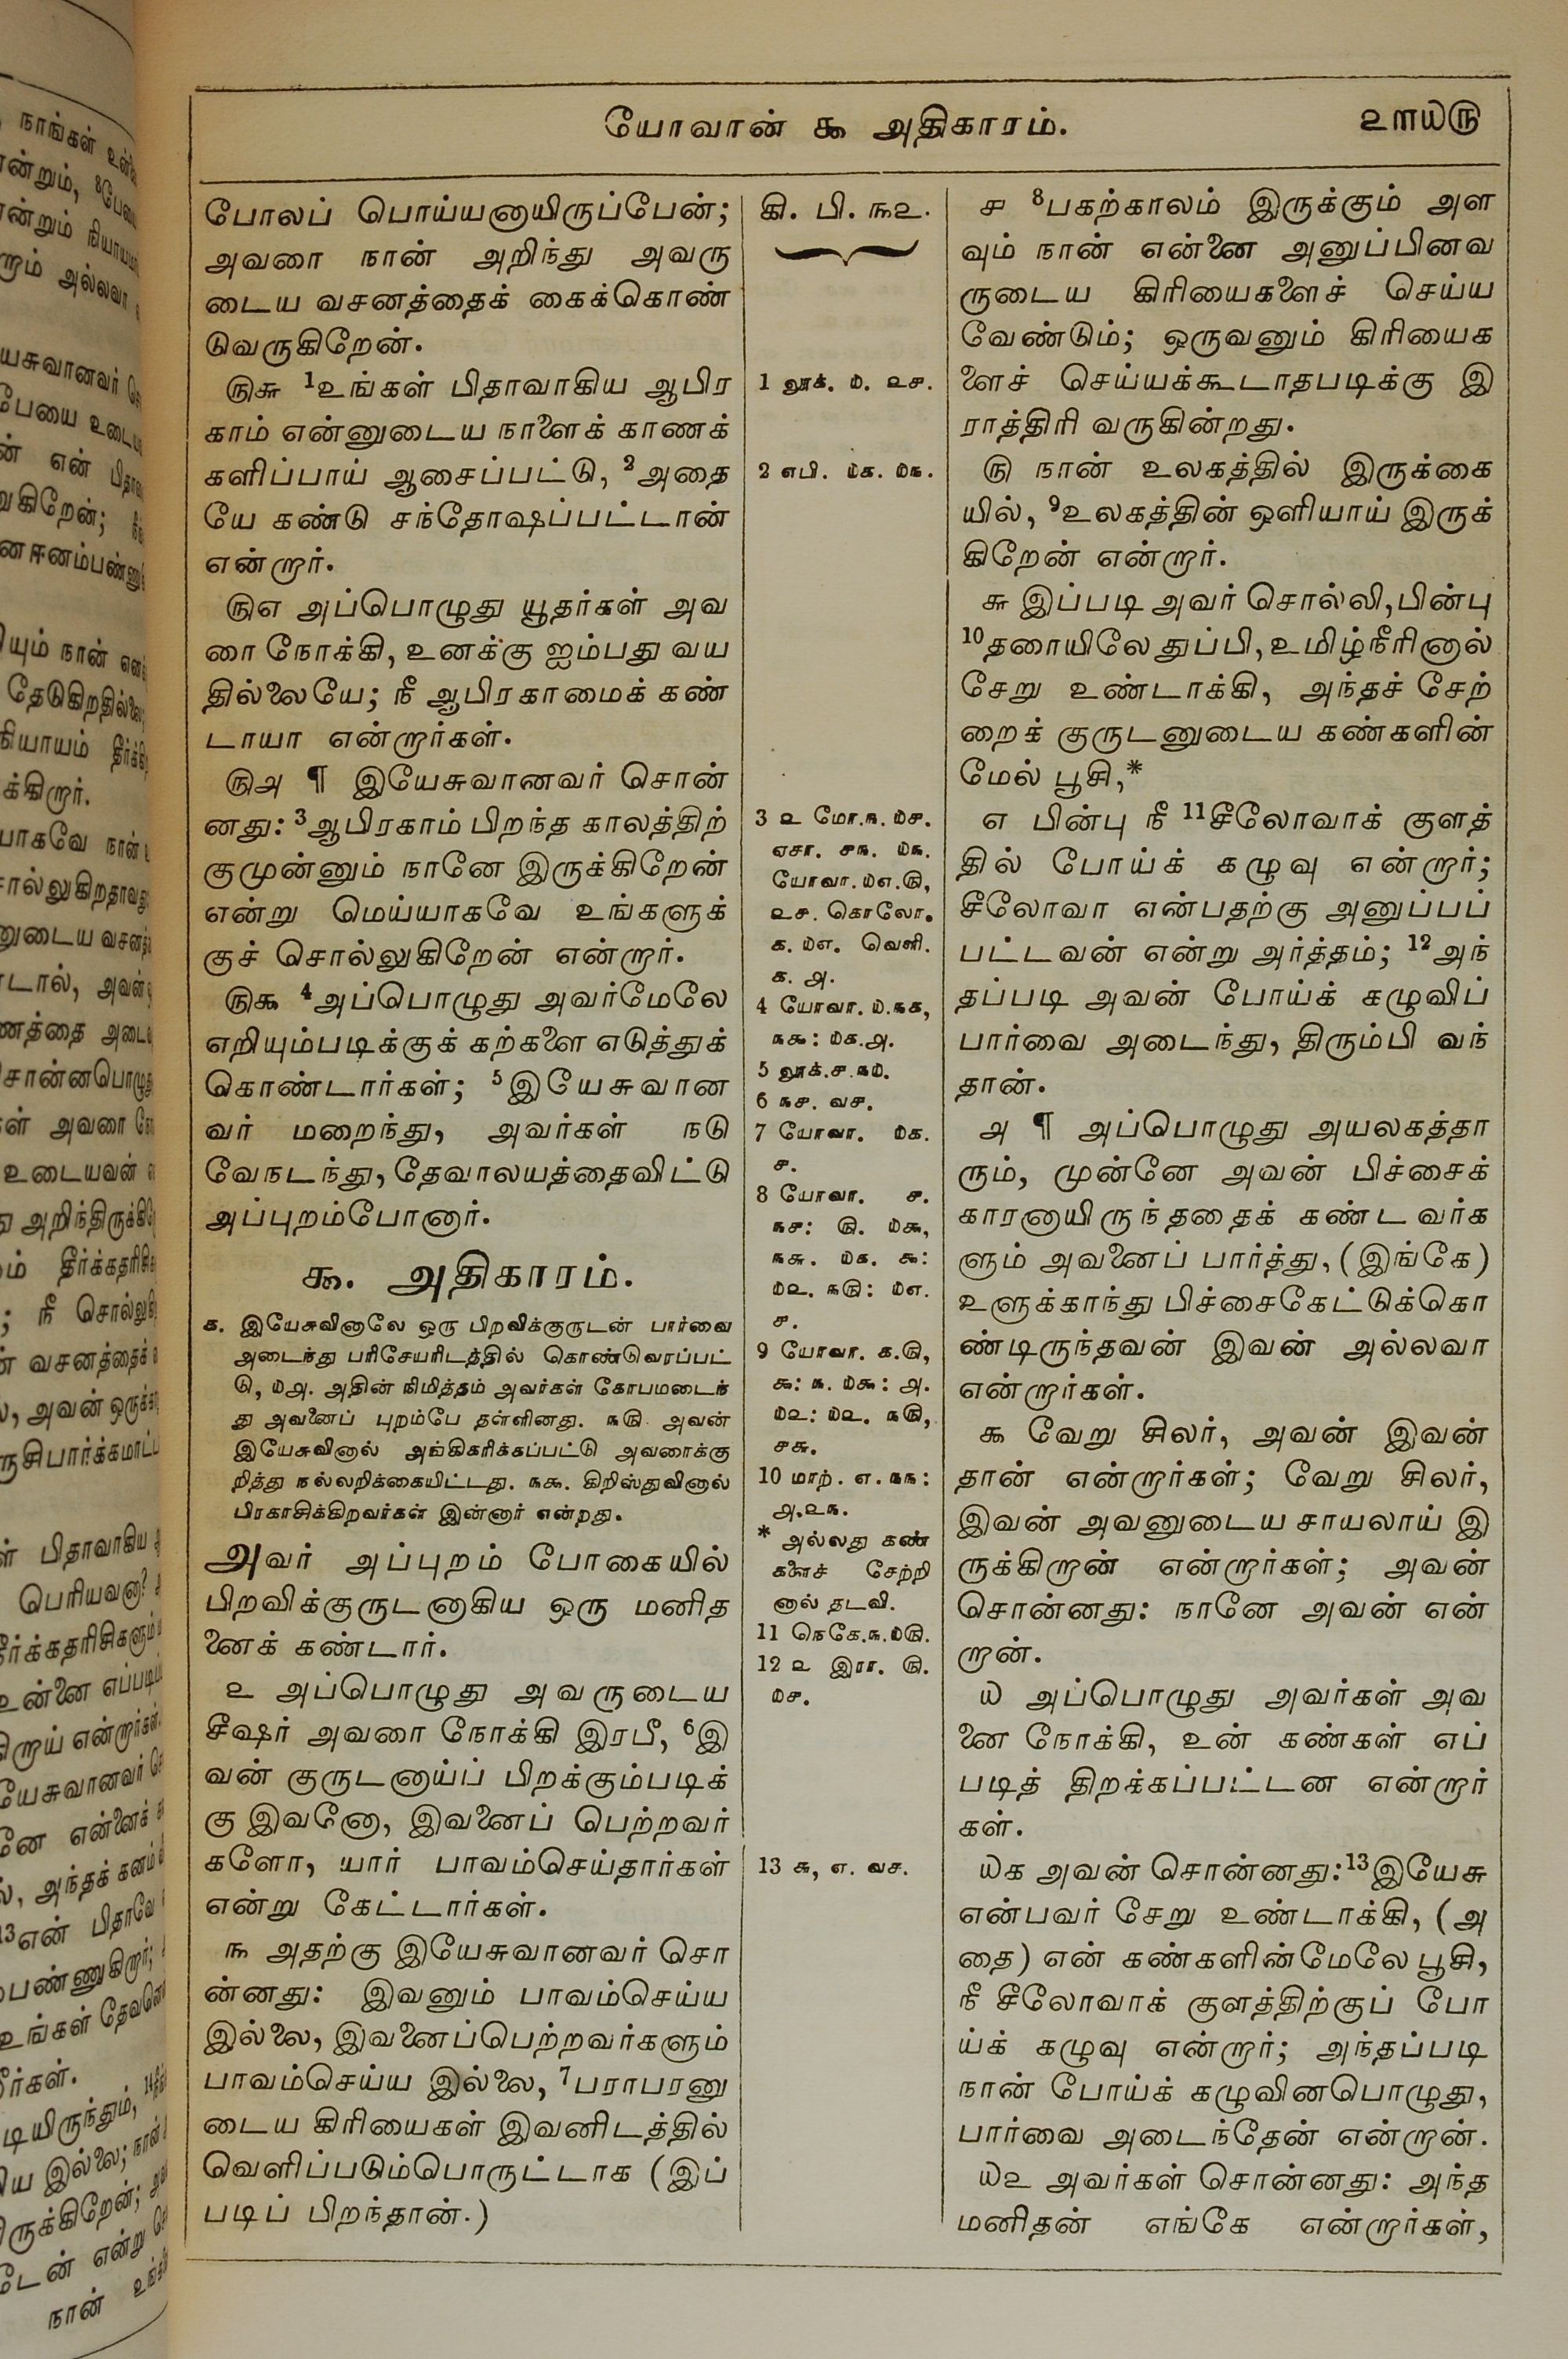 யோவான் ௯ அதிகாரம்.
௨௱௰௫
போலப் பொய்யனாயிருப்பேன்;
அவரை நான் அறிந்து அவரு
டைய வசனத்தைக் கைக்கொண்
டுவருகிறேன்.
௫௬ ¹உங்கள் பிதாவாகிய ஆபிர
காம் என்னுடைய நாளைக் காணக்
களிப்பாய் ஆசைப்பட்டு, ²அதை
யே கண்டு சந்தோஷப்பட்டான்
என்றார்.
௫௭ அப்பொழுது யூதர்கள் அவ
ரை நோக்கி, உனக்கு ஐம்பது வய
தில்லையே; நீ ஆபிரகாமைக் கண்
டாயா என்றார்கள்.
௫௮ ¶ இயேசுவானவர் சொன்
னது: ³ஆபிரகாம் பிறந்த காலத்திற்
குமுன்னும் நானே இருக்கிறேன்
என்று மெய்யாகவே உங்களுக்
குச் சொல்லுகிறேன் என்றார்.
௫௯ ⁴அப்பொழுது அவர்மேலே
எறியும்படிக்குக் கற்களை எடுத்துக்
கொண்டார்கள்; ⁵இயேசுவான
வர் மறைந்து, அவர்கள் நடு
வேநடந்து, தேவாலயத்தைவிட்டு
அப்புறம்போனார்.
௯. அதிகாரம்.
௧. இயேசுவினாலே ஒரு பிறவிக்குருடன் பார்வை
அடைந்து பரிசேயரிடத்தில் கொண்டுவரப்பட்
டு, ௰௮. அதின் நிமித்தம் அவர்கள் கோபமடைந்
து அவனைப் புறம்பே தள்ளினது. ௩௫. அவன்
இயேசுவினால் அங்கிகரிக்கப்பட்டு அவரைக்கு
றித்து நல்லறிக்கையிட்டது. ௩௯. கிறிஸ்துவினால்
பிரகாசிக்கிறவர்கள் இன்னார் என்றது.
அவர் அப்புறம் போகையில்
பிறவிக்குருடனாகிய ஒரு மனித
னைக் கண்டார்.
௨ அப்பொழுது அவருடைய
சீஷர் அவரை நோக்கி இரபீ, ⁶இ
வன் குருடனாய்ப் பிறக்கும்படிக்
கு இவனோ, இவனைப் பெற்றவர்
களோ, யார் பாவம்செய்தார்கள்
என்று கேட்டார்கள்.
௩ அதற்கு இயேசுவானவர் சொ
ன்னது: இவனும் பாவம்செய்ய
இல்லை, இவனைப்பெற்றவர்களும்
பாவம்செய்ய இல்லை, ⁷பராபரனு
டைய கிரியைகள் இவனிடத்தில்
வெளிப்படும்பொருட்டாக (இப்
படிப் பிறந்தான்.)
கி. பி. ௩௨.
1 லூக். ௰. ௨௪.
2 எபி. ௰௧. ௰௩.
3 ௨ மோ.௩. ௰௪.
ஏசா. ௪௩. ௰௩.
யோவா. ௰௭.௫,
௨௪. கொலோ.
௧. ௰௭. வெளி.
௧. ௮.
4 யோவா. ௰.௩௧,
௩௯: ௰௧.௮.
5 லூக்.௪.௩௰.
6 ௩௪. வச.
7 யோவா. ௰௧.
௪.
8 யோவா. ௪.
௩௪: ௫. ௰௯,
௩௬. ௰௧. ௯:
௰௨. ௩௫: ௰௭.
௪.
9 யோவா. ௧.௫,
௯: ௩. ௰௯: ௮.
௰௨: ௰௨. ௩௫,
௪௬.
10 மாற். ௭. ௩௩:
௮.௨௩.
* அல்லது கண்
களைச் சேற்றி
னால் தடவி.
11 நெகே.௩.௰௫.
12 ௨ இரா. ௫.
௰௪.
13 ௬, ௭. வச.
௪ ⁸பகற்காலம் இருக்கும் அள
வும் நான் என்னை அனுப்பினவ
ருடைய கிரியைகளைச் செய்ய
வேண்டும்; ஒருவனும் கிரியைக
ளைச் செய்யக்கூடாதபடிக்கு இ
ராத்திரி வருகின்றது.
௫ நான் உலகத்தில் இருக்கை
யில், ⁹உலகத்தின் ஒளியாய் இருக்
கிறேன் என்றார்.
௬ இப்படி அவர் சொல்லி, பின்பு
¹⁰தரையிலே துப்பி, உமிழ்நீரினால்
சேறு உண்டாக்கி, அந்தச் சேற்
றைக் குருடனுடைய கண்களின்
மேல் பூசி,*
௭ பின்பு நீ ¹¹சீலோவாக் குளத்
தில் போய்க் கழுவு என்றார்;
சீலோவா என்பதற்கு அனுப்பப்
பட்டவன் என்று அர்த்தம்; ¹²அந்
தப்படி அவன் போய்க் கழுவிப்
பார்வை அடைந்து, திரும்பி வந்
தான்.
௮ ¶ அப்பொழுது அயலகத்தா
ரும், முன்னே அவன் பிச்சைக்
காரனாயிருந்ததைக் கண்டவர்க
ளும் அவனைப் பார்த்து, (இங்கே)
உளுக்காந்து பிச்சைகேட்டுக்கொ
ண்டிருந்தவன் இவன் அல்லவா
என்றார்கள்.
௯ வேறு சிலர், அவன் இவன்
தான் என்றார்கள்; வேறு சிலர்,
இவன் அவனுடைய சாயலாய் இ
ருக்கிறான் என்றார்கள்; அவன்
சொன்னது: நானே அவன் என்
றான்.
௰ அப்பொழுது அவர்கள் அவ
னை நோக்கி, உன் கண்கள் எப்
படித் திறக்கப்பட்டன என்றார்
கள்.
௰௧ அவன் சொன்னது:¹³இயேசு
என்பவர் சேறு உண்டாக்கி, (அ
தை) என் கண்களின்மேலே பூசி,
நீ சீலோவாக் குளத்திற்குப் போ
ய்க் கழுவு என்றார்; அந்தப்படி
நான் போய்க் கழுவினபொழுது,
பார்வை அடைந்தேன் என்றான்.
௰௨ அவர்கள் சொன்னது: அந்த
மனிதன் எங்கே என்றார்கள்,